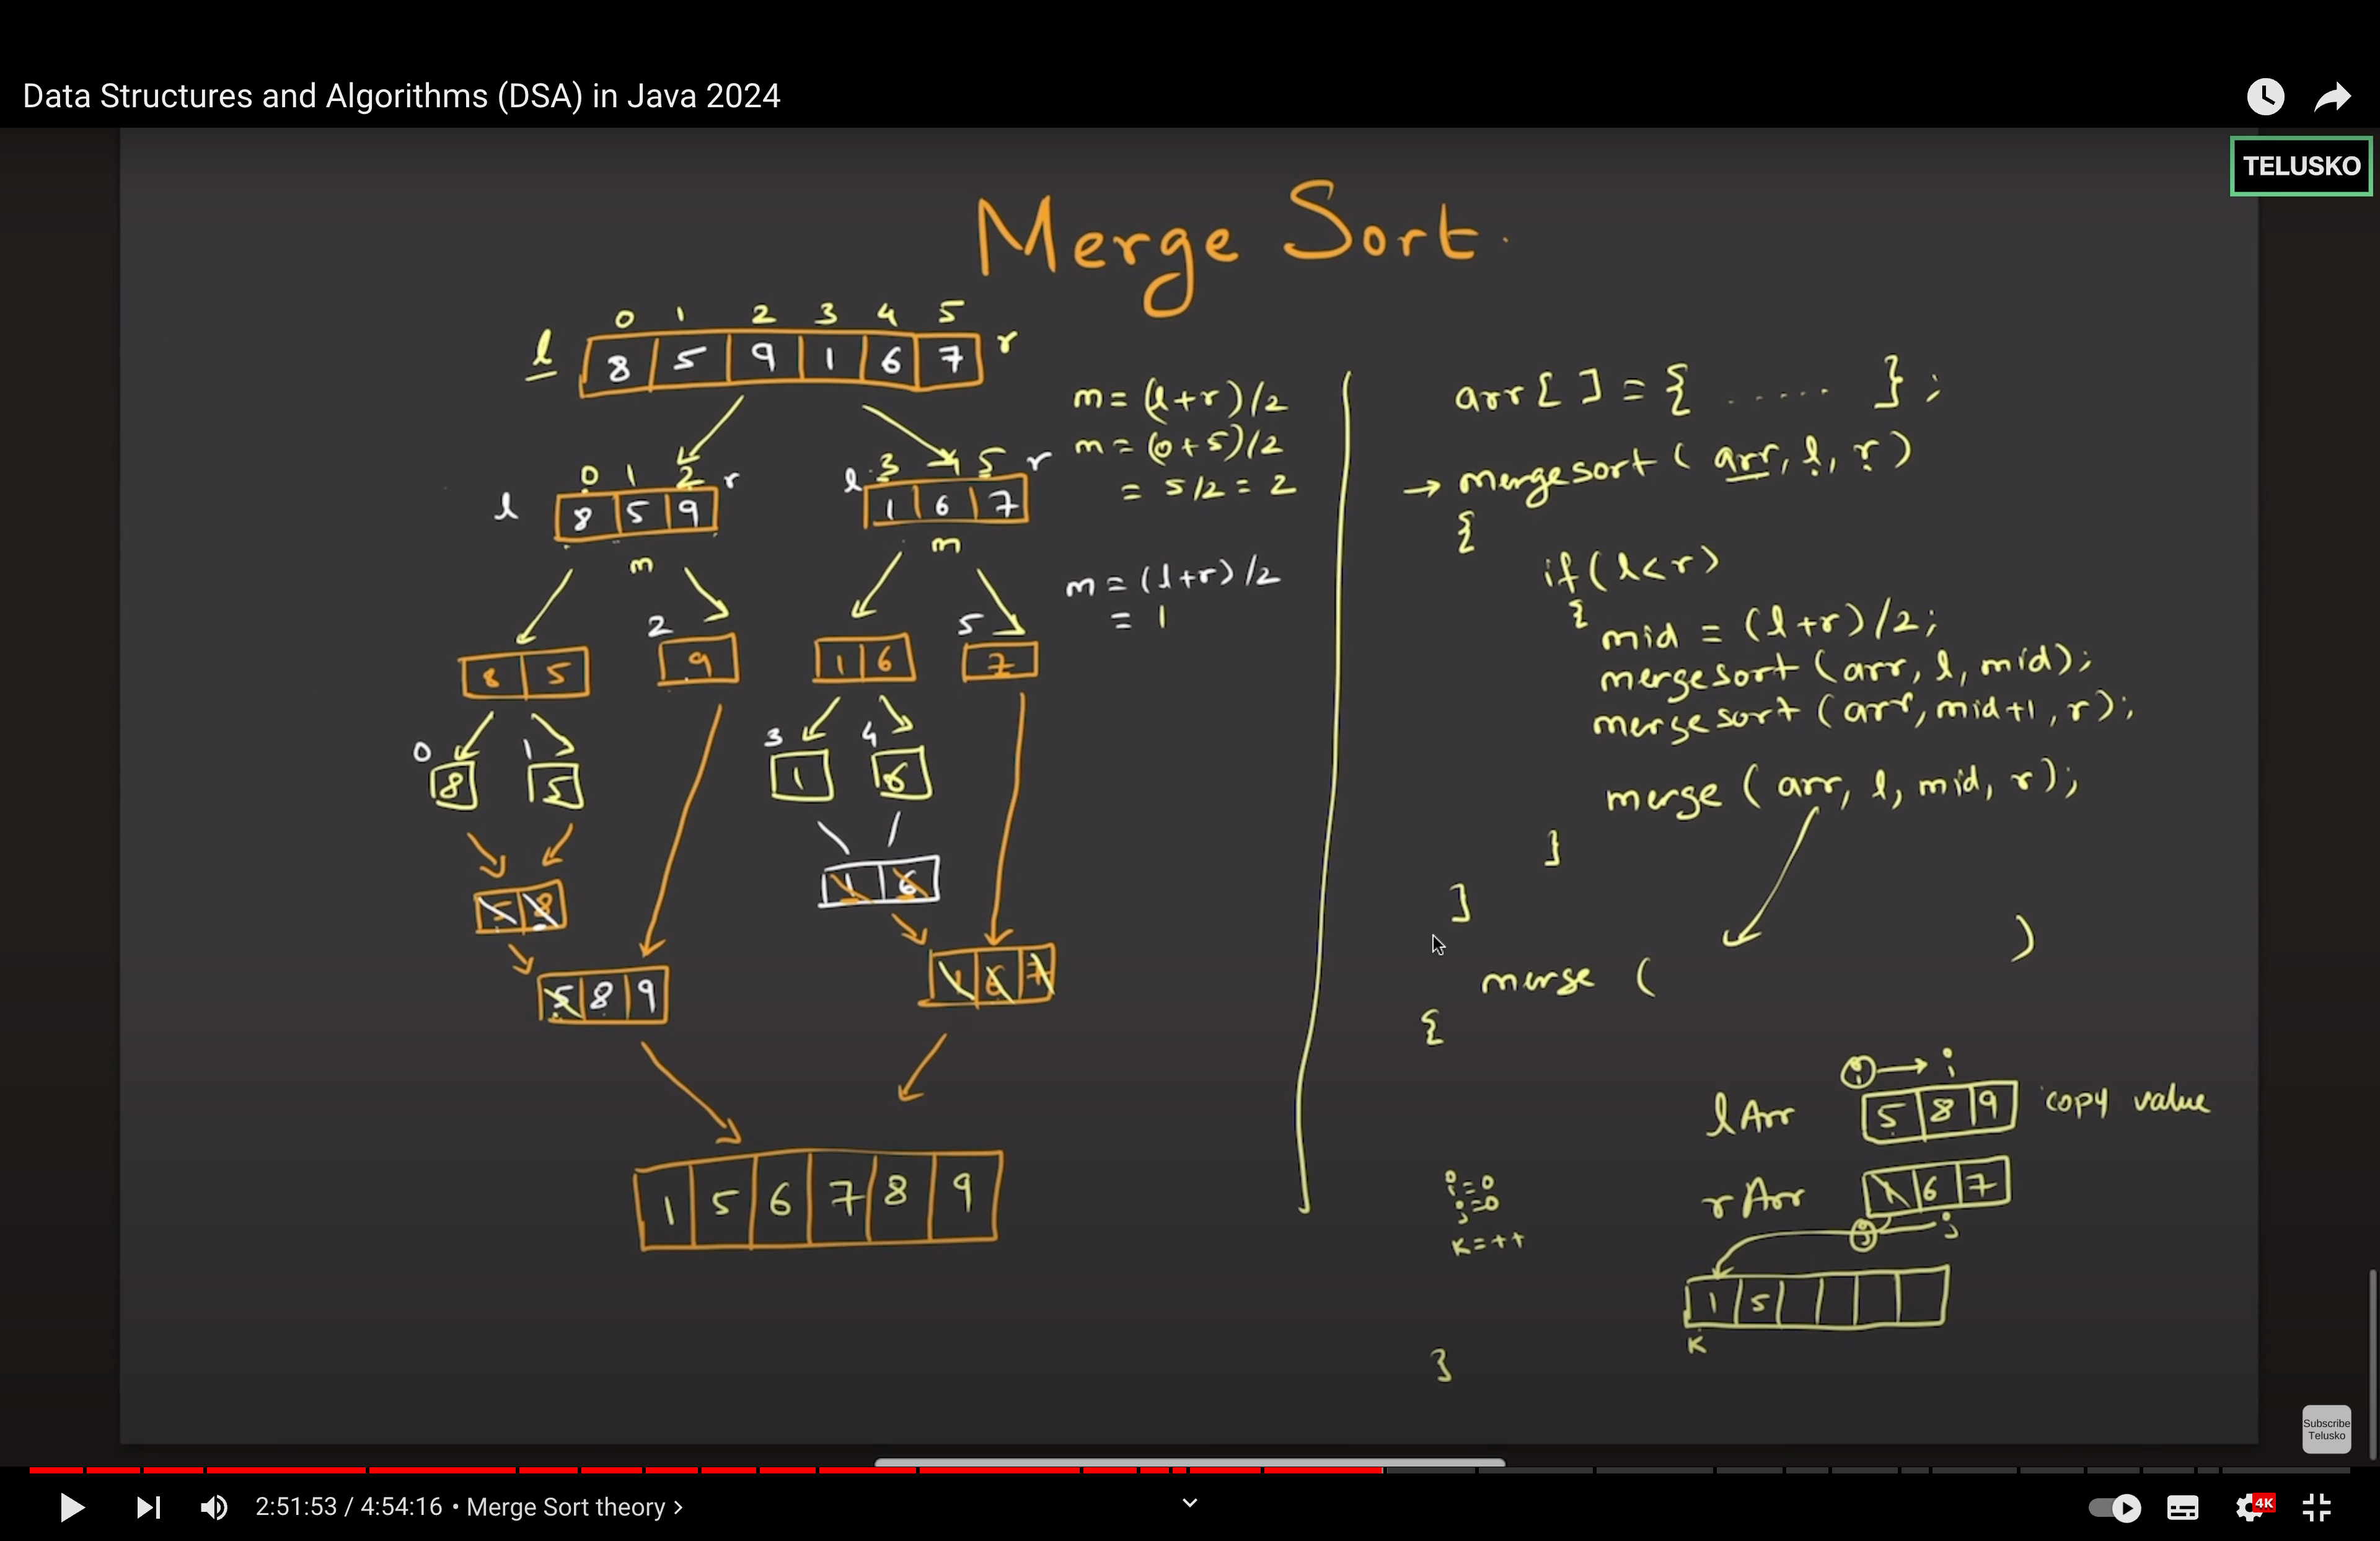 Data Structures and Algorithms (DSA) in Java 2024
TELUSKO
Merge Sort.
0 1 2 3 4 5
l 8 5 9 1 6 7 r
m = (l+r)/2
m = (0+5)/2
= 5/2 = 2
0 1 2 r
l 8 5 9
m
l 3 4 5 r
1 6 7
m
m = (l+r)/2
= 1
8 5
2
9
1 6
5
7
0 1
8 5
3 4
1 6
5 8
1 6
5 8 9
1 6 7
1 5 6 7 8 9
arr [ ] = { ..... } ;
→ mergesort ( arr, l, r )
{
if ( l < r )
{
mid = (l+r)/2;
mergesort ( arr, l, mid );
mergesort ( arr, mid+1, r );
merge ( arr, l, mid, r );
}
}
merge ( )
{
i → i
l Arr 5 8 9 copy value
r Arr 1 6 7
j j
i=0
j=0
K=++
1 5
K
}
Subscribe
Telusko
2:51:53 / 4:54:16 • Merge Sort theory >
4K